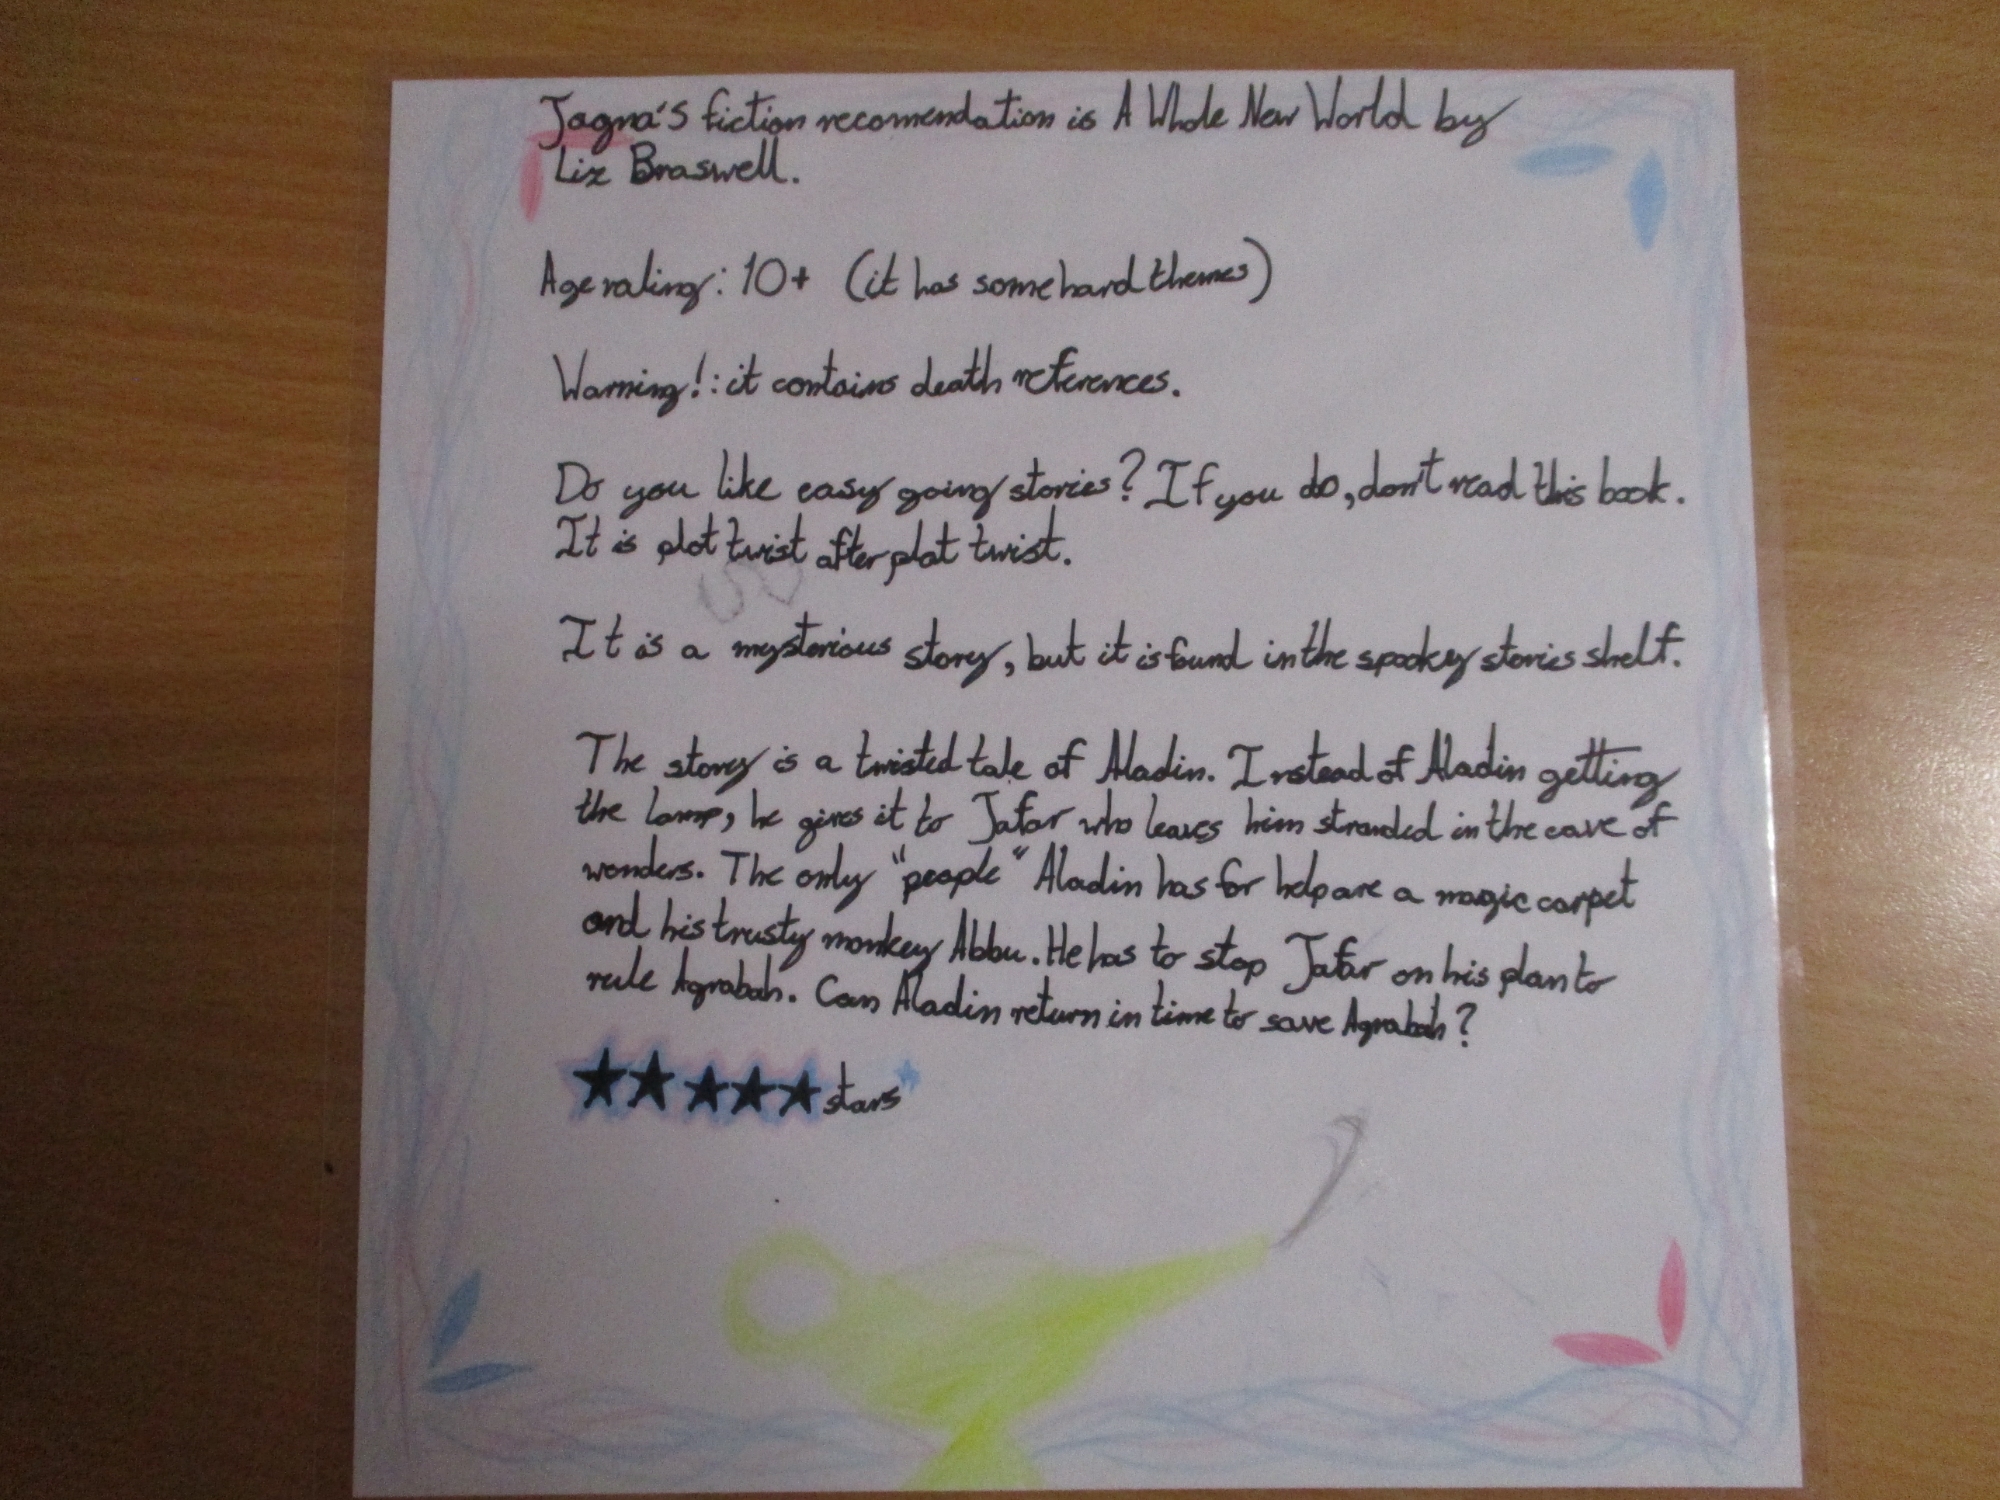 Jagna's fiction recomendation is A Whole New World by
Liz Braswell.
Age rating: 10+ (it has some hard themes)
Warning!: it contains death references.
Do you like easy going stories? If you do, don't read this book.
It is plot twist after plot twist.
It is a mysterious story, but it is found in the spookey stories shelf.
The story is a twisted tale of Aladin. Instead of Aladin getting
the lamp, he gives it to Jafar who leaves him stranded in the cave of
wonders. The only "people" Aladin has for help are a magic carpet
and his trusty monkey Abbu. He has to stop Jafar on his plan to
rule Agrabah. Can Aladin return in time to save Agrabah?
★★★★★ stars